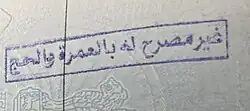 غير مصرح له بالعمرة والحج